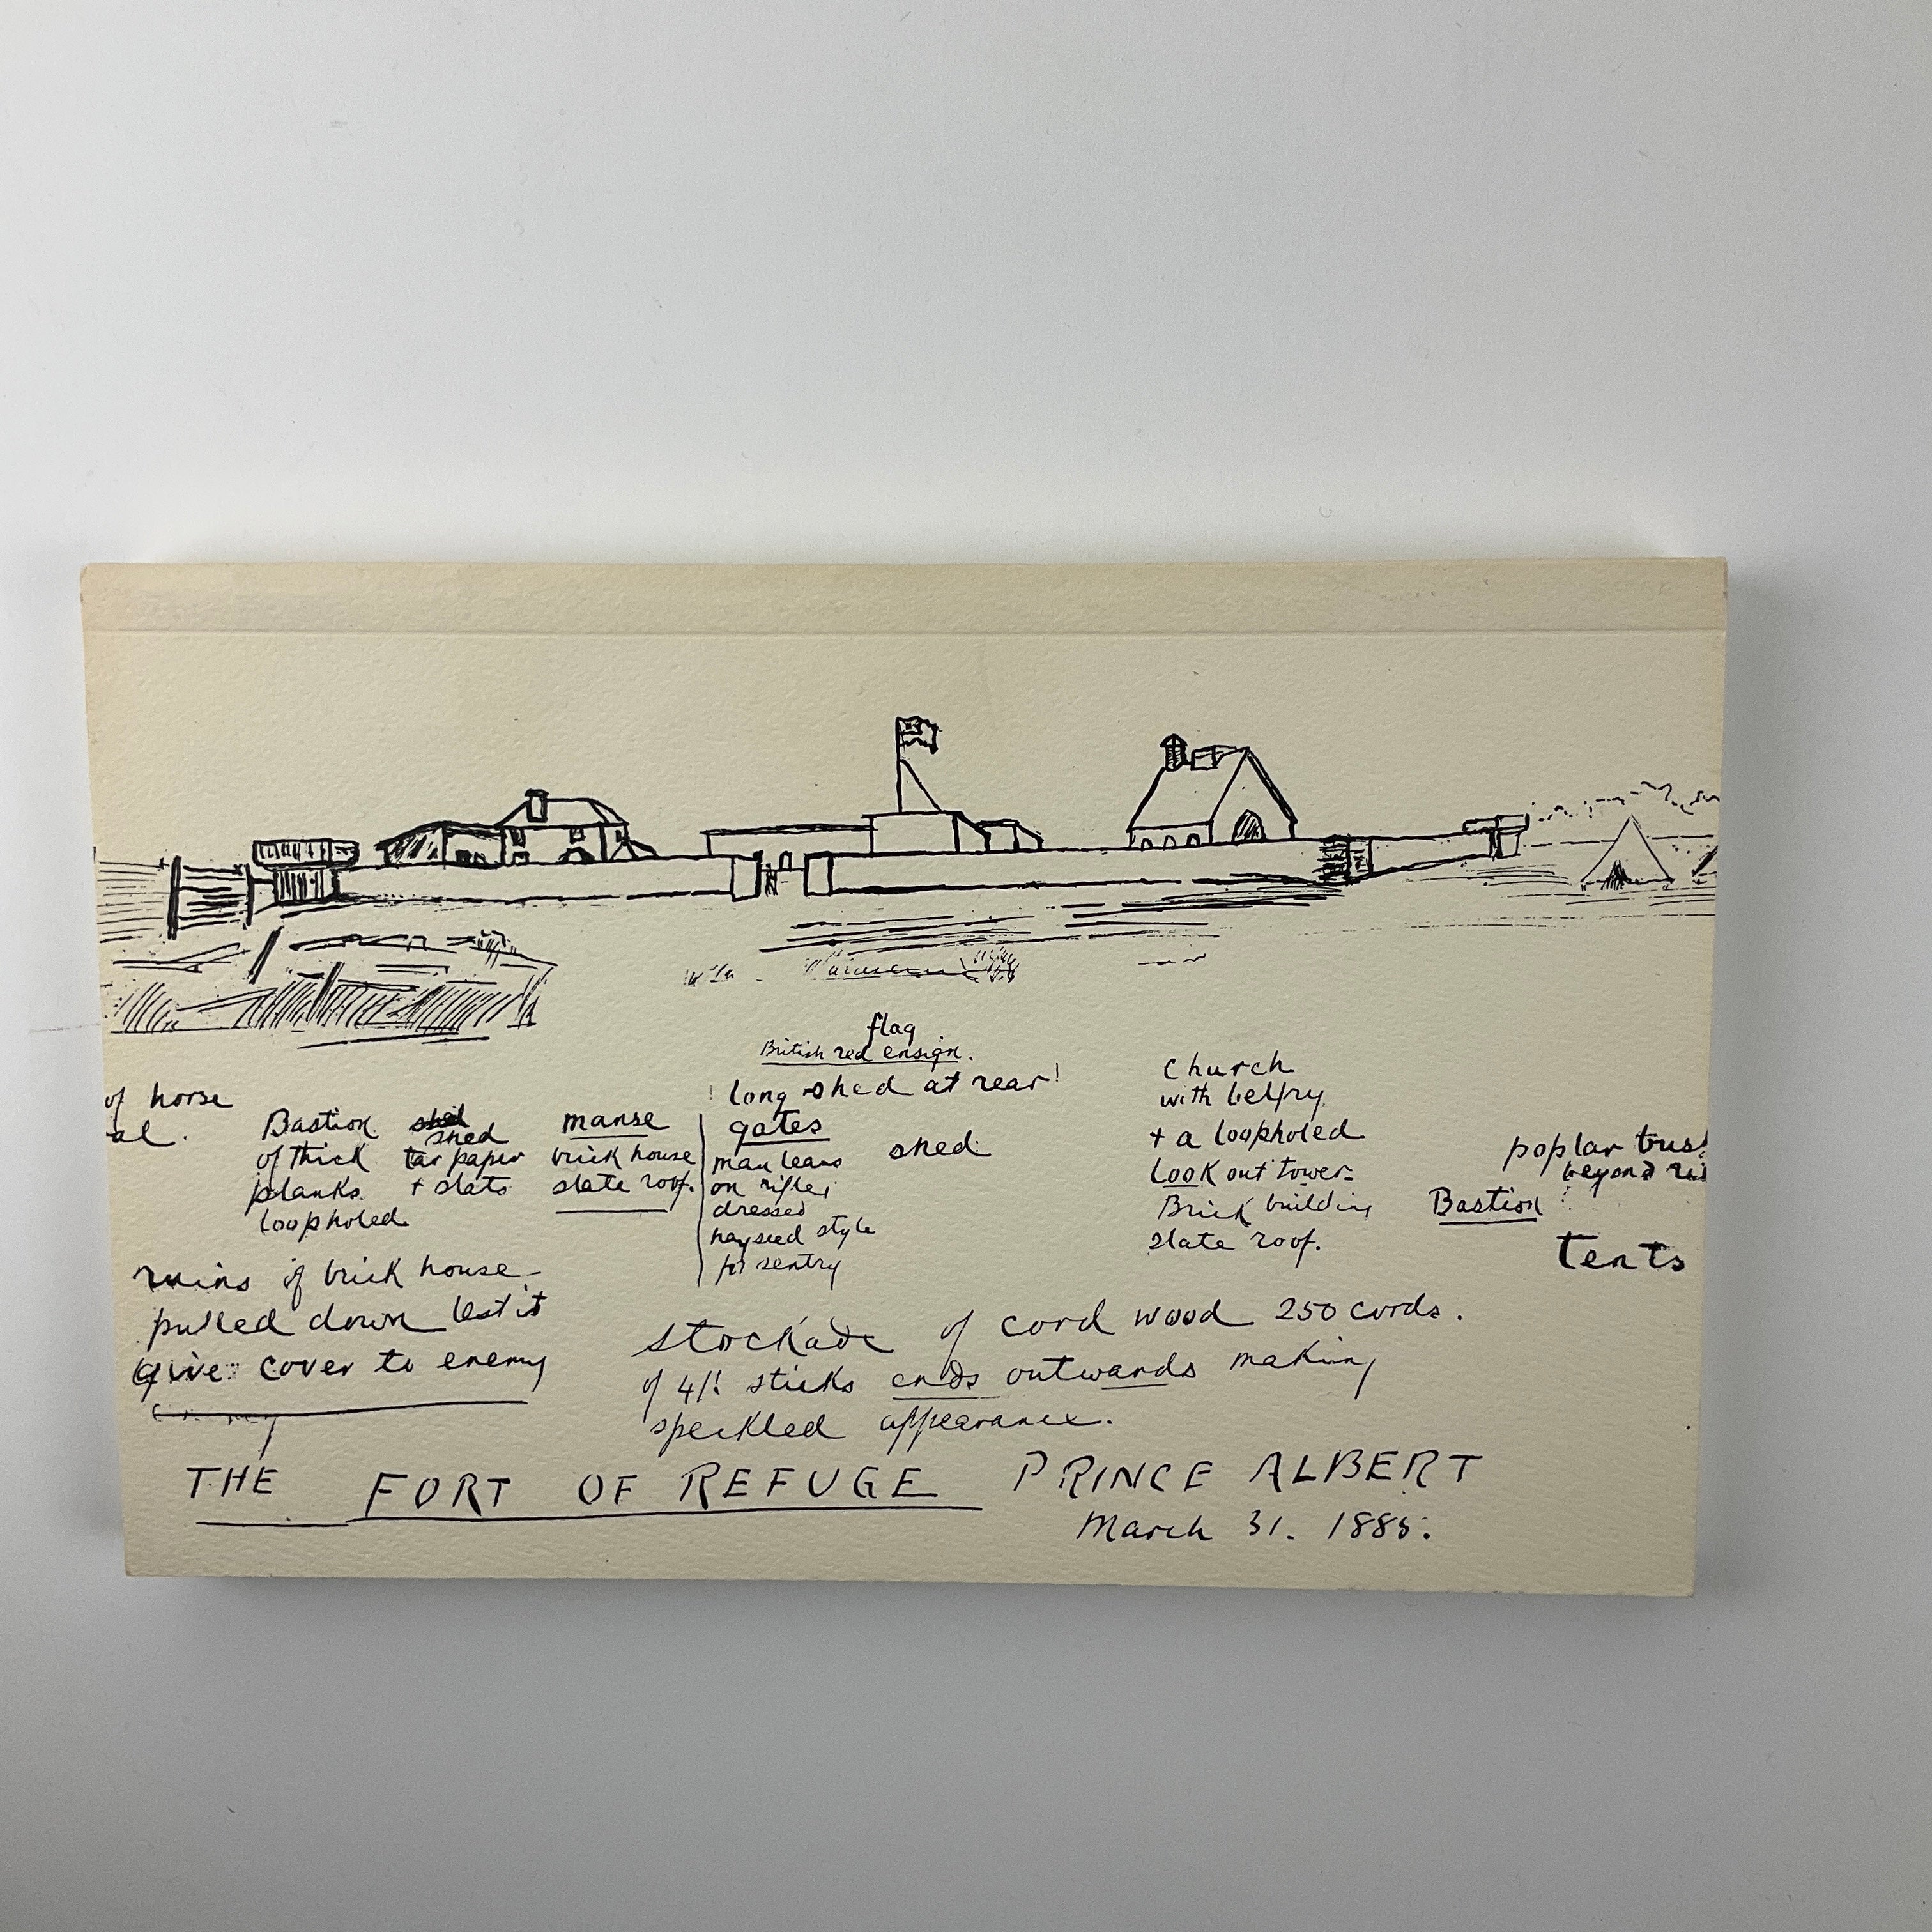 flag
British red ensign.
long shed at rear!
of horse
al.
Bastion
of thick
planks
loopholed.
shed
shed
tar paper
+ slats
manse
brick house
slate roof.
gates
man leans
on rifle,
dressed
hayseed style
for sentry
shed
Church
with belfry
+ a loopholed
Look out tower
Brick building
slate roof.
poplar
beyond
Bastion
tents
ruins of brick house
pulled down lest it
give cover to enemy
stockade of cord wood 250 cords.
of 4ft sticks ends outwards making
speckled appearance.
THE FORT OF REFUGE PRINCE ALBERT
March 31. 1885.